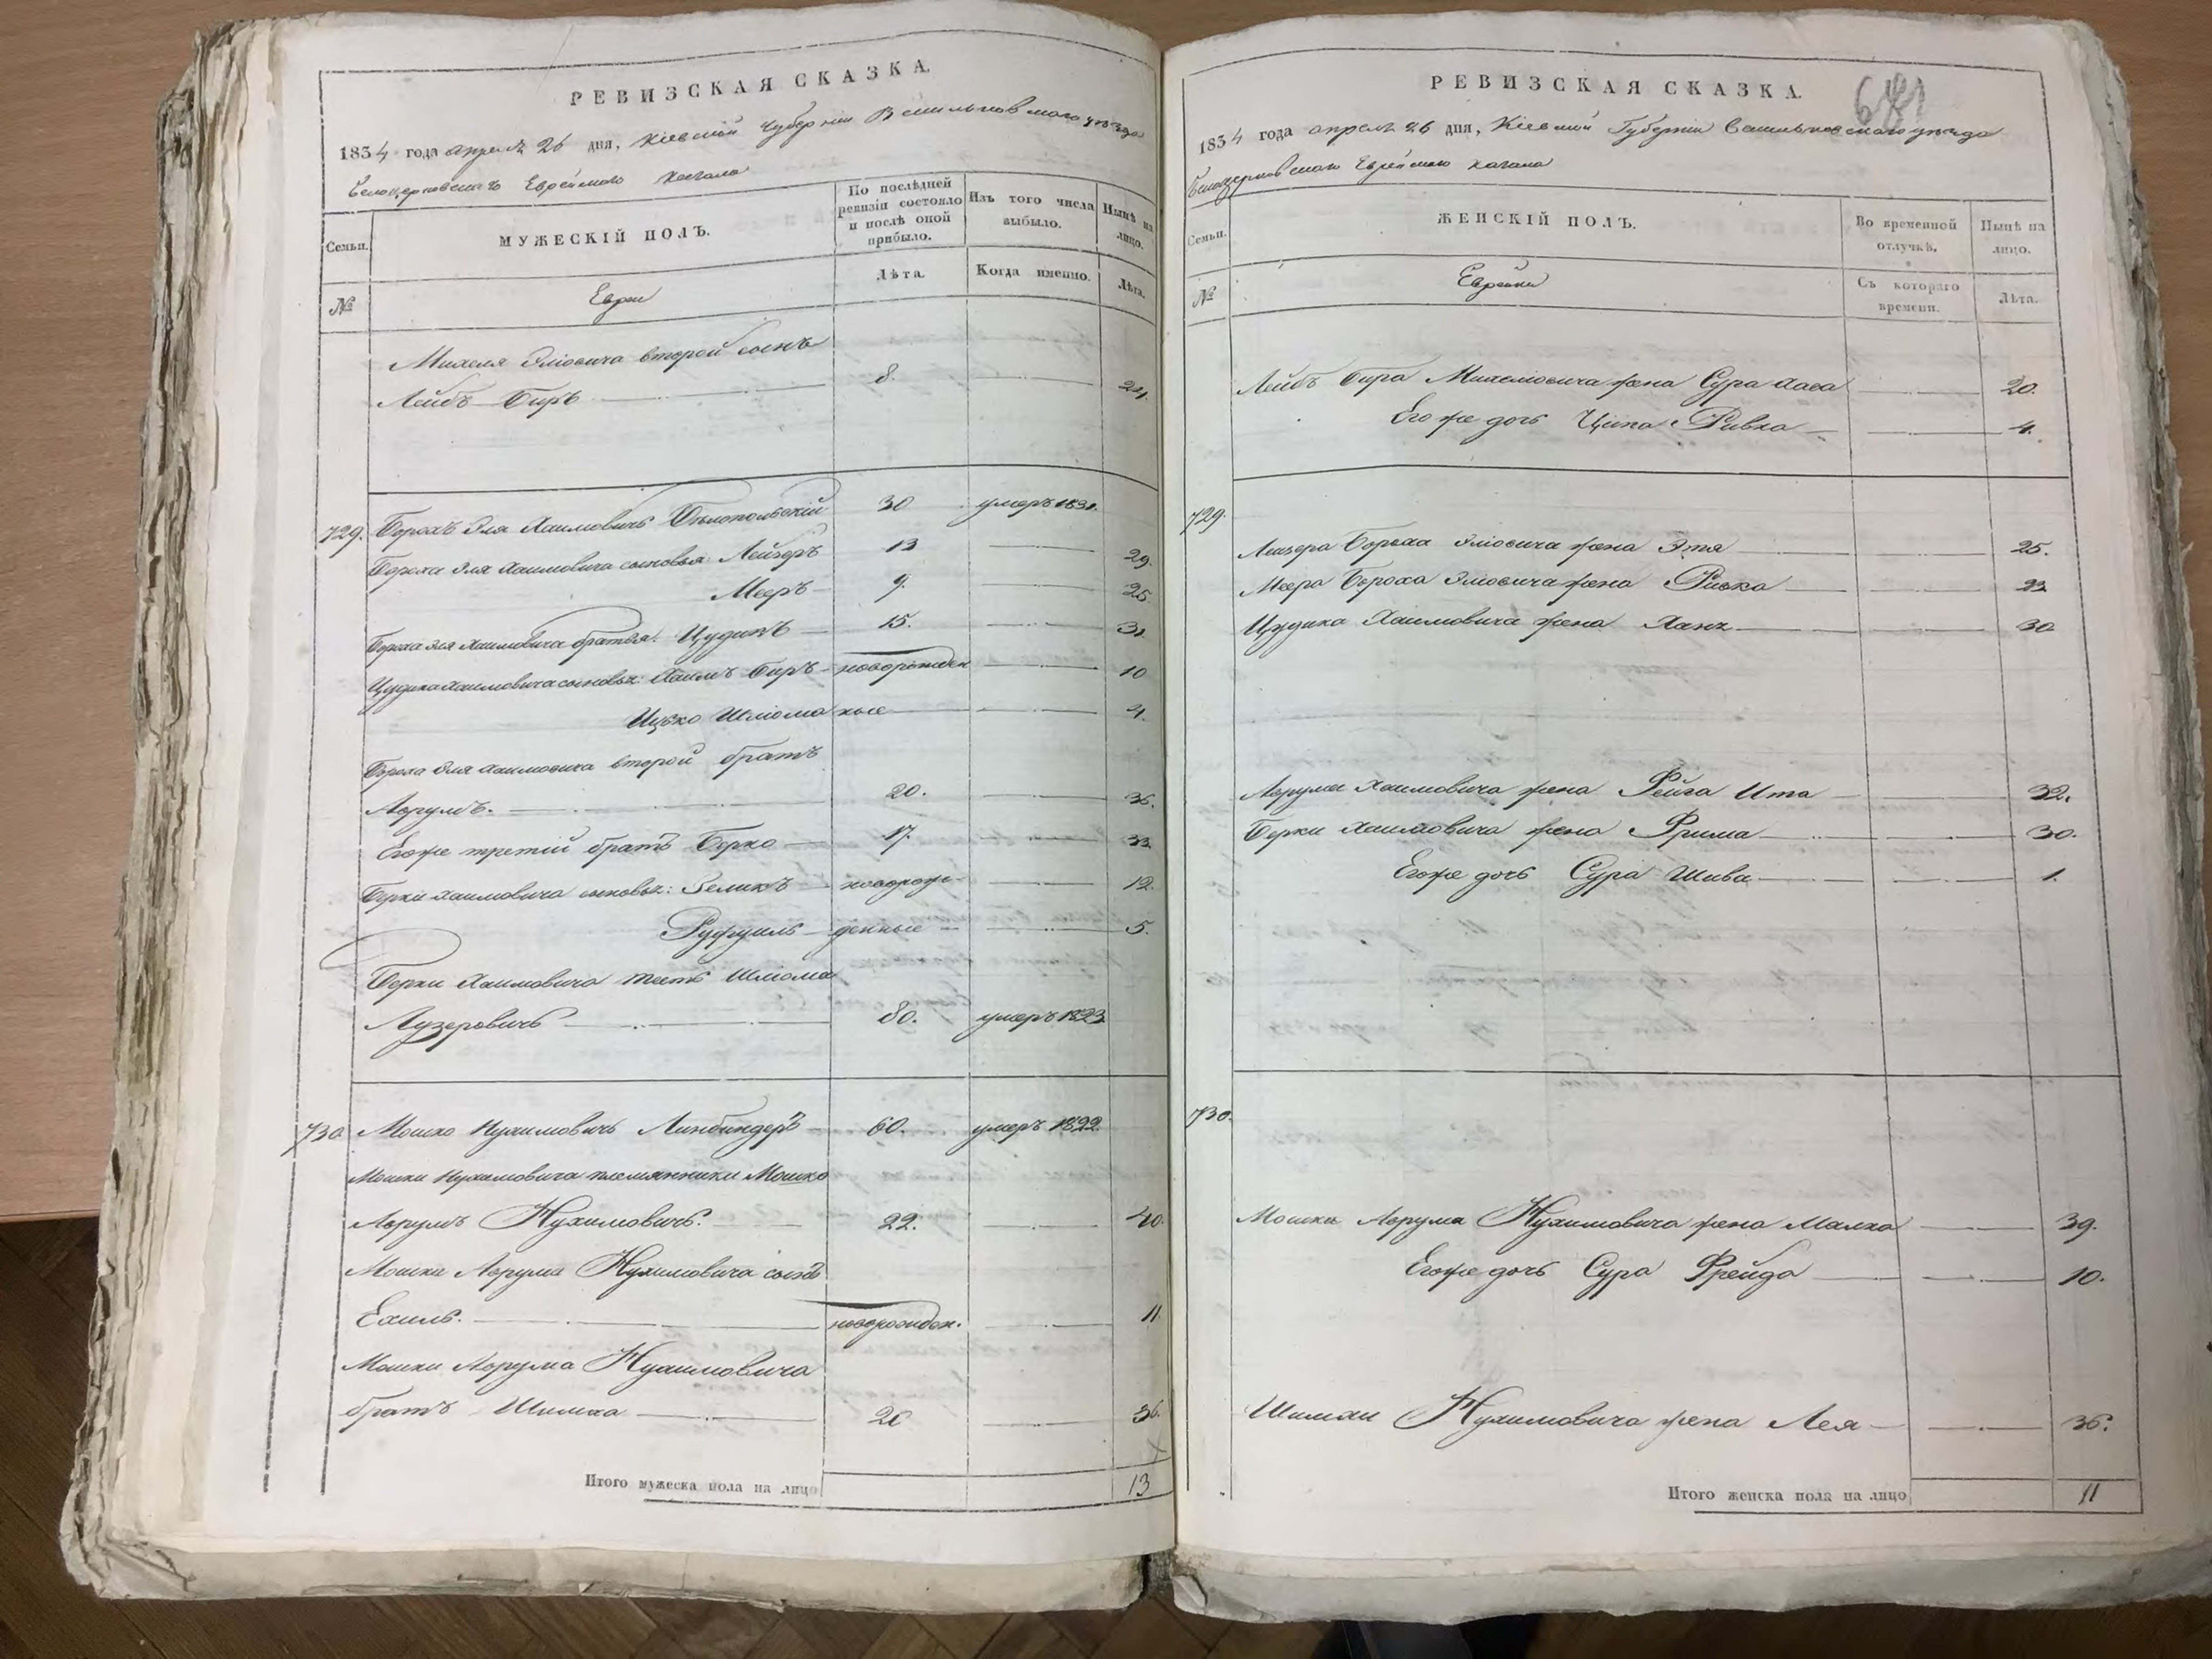 РЕВИЗСКАЯ СКАЗКА.
1834 года апреля 26 дня, Кіевской Губерніи Васильковскаго уѣзда
Белоцерковскаго Еврейскаго Кагала
Семьи.
МУЖЕСКІЙ ПОЛЪ.
По послѣдней ревизіи состояло и послѣ оной прибыло.
Изъ того числа выбыло.
Нынѣ на лицо.
№
Евреи
Лѣта.
Когда именно.
Лѣта.
Михеля Эліовича второй сынъ
Лейбъ Беръ 8. 24.
729. Борохъ Эля Хаимовичъ Бѣлопольскій 30 умеръ 1831.
Бороха Эля Хаимовича сыновья: Лейзеръ 13 29.
Мееръ 9. 25.
Бороха Эля Хаимовича братья: Цудикъ 15. 31.
Цудика Хаимовича сыновья: Хаимъ Беръ новорожден 10
Ицько Шліома ные 4.
Бороха Эля Хаимовича второй братъ
Аврумъ. 20. 36.
Егоже третій братъ Берко 17. 33.
Берки Хаимовича сыновья: Зеликъ новорож- 12.
Руфуиль денные 5.
Берки Хаимовича тесть Шліома
Лузеровичъ 80. умеръ 1823.
730 Мошко Нухимовичъ Линбиндеръ 60. умеръ 1822.
Мошки Нухимовича племянники Мошко
Аврумъ Нухимовичъ. 22. 40.
Мошки Аврума Нухимовича сынъ
Ехиль. новорожден. 11.
Мошки Аврума Нухимовича
братъ Шимха 20 36.
Итого мужеска пола на лицо 13
РЕВИЗСКАЯ СКАЗКА.
1834 года апреля 26 дня, Кіевской Губерніи Васильковскаго уѣзда
Белоцерковскаго Еврейскаго Кагала
Семьи.
ЖЕНСКІЙ ПОЛЪ.
Во временной отлучкѣ.
Нынѣ на лицо.
№
Еврейки
Съ котораго времени.
Лѣта.
Лейбъ Бера Михеліовича жена Сура Хаса 20.
Его же дочь Ципа Ривка 4.
729.
Лейзера Бороха Эліовича жена Этя 25.
Меера Бороха Эліовича жена Ривка 23
Цудика Хаимовича жена Хана 30
Аврума Хаимовича жена Рейза Ита 32.
Берки Хаимовича жена Фрима 30.
Егоже дочь Сура Шива 1.
730.
Мошки Аврума Нухимовича жена Малка 39.
Егоже дочь Сура Фрейда 10.
Шимхи Нухимовича жена Лея 36.
Итого женска пола на лицо 11